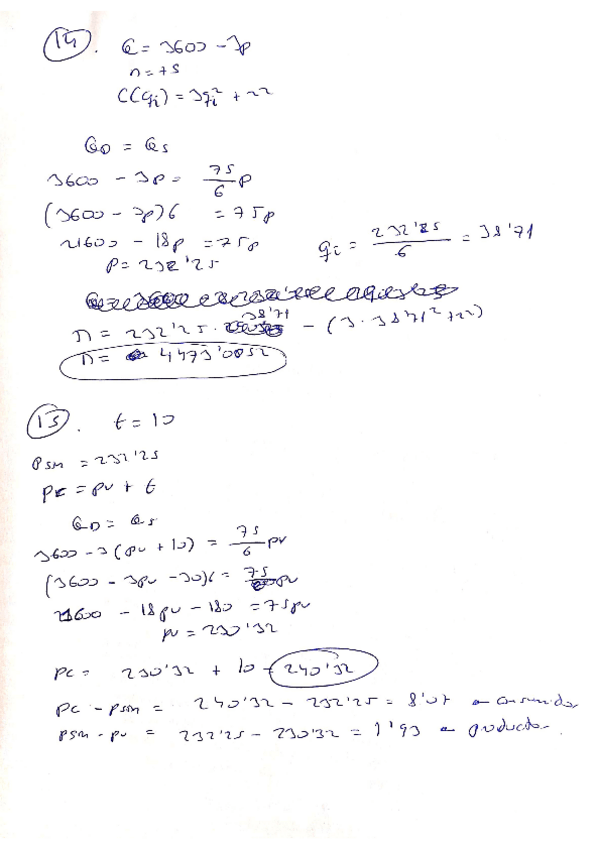 14. Q = 3600 - 3p
n = 75
C(qi) = 3qi² + 22
QD = QS
3600 - 3p = 75/6 p
(3600 - 3p)6 = 75p
21600 - 18p = 75p
p = 232'25
qi = 232'25/6 = 38'71
π = 232'25 · 38'71 - (3 · 38'71² + 22)
π = 4473'0052
15. t = 10
Psm = 232'25
pc = pv + t
QD = QS
3600 - 3(pv + 10) = 75/6 pv
(3600 - 3pv - 30)6 = 75pv
21600 - 18pv - 180 = 75pv
pv = 230'32
pc = 230'32 + 10 = 240'32
pc - psm = 240'32 - 232'25 = 8'07 consumidor
psm - pv = 232'25 - 230'32 = 1'93 productor.